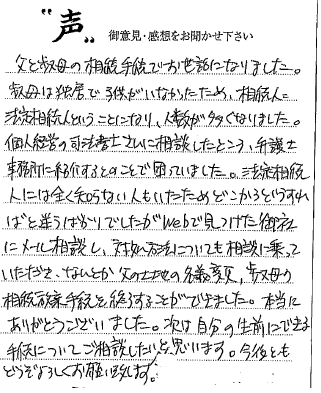 "声" 御意見・感想をお聞かせ下さい
父と叔母の相続手続でお世話になりました。
叔母は独居で子供がいなかったため、相続人は
法定相続人ということになり、人数が多くなりました。
個人経営の司法書士さんに相談したところ、弁護士
事務所に紹介するとのことで困っていました。法定相続
人には全く知らない人もいたためどこからどうすれ
ばと迷うばかりでしたがWebで見つけた御社
にメール相談し、対処方法についても相談に乗って
いただき、なんとか父の土地の名義変更、叔母の
相続放棄手続を終了することができました。本当に
ありがとうございました。次は自分の生前にできる
手続についてご相談したいと思います。今後とも
どうぞよろしくお願い致します。